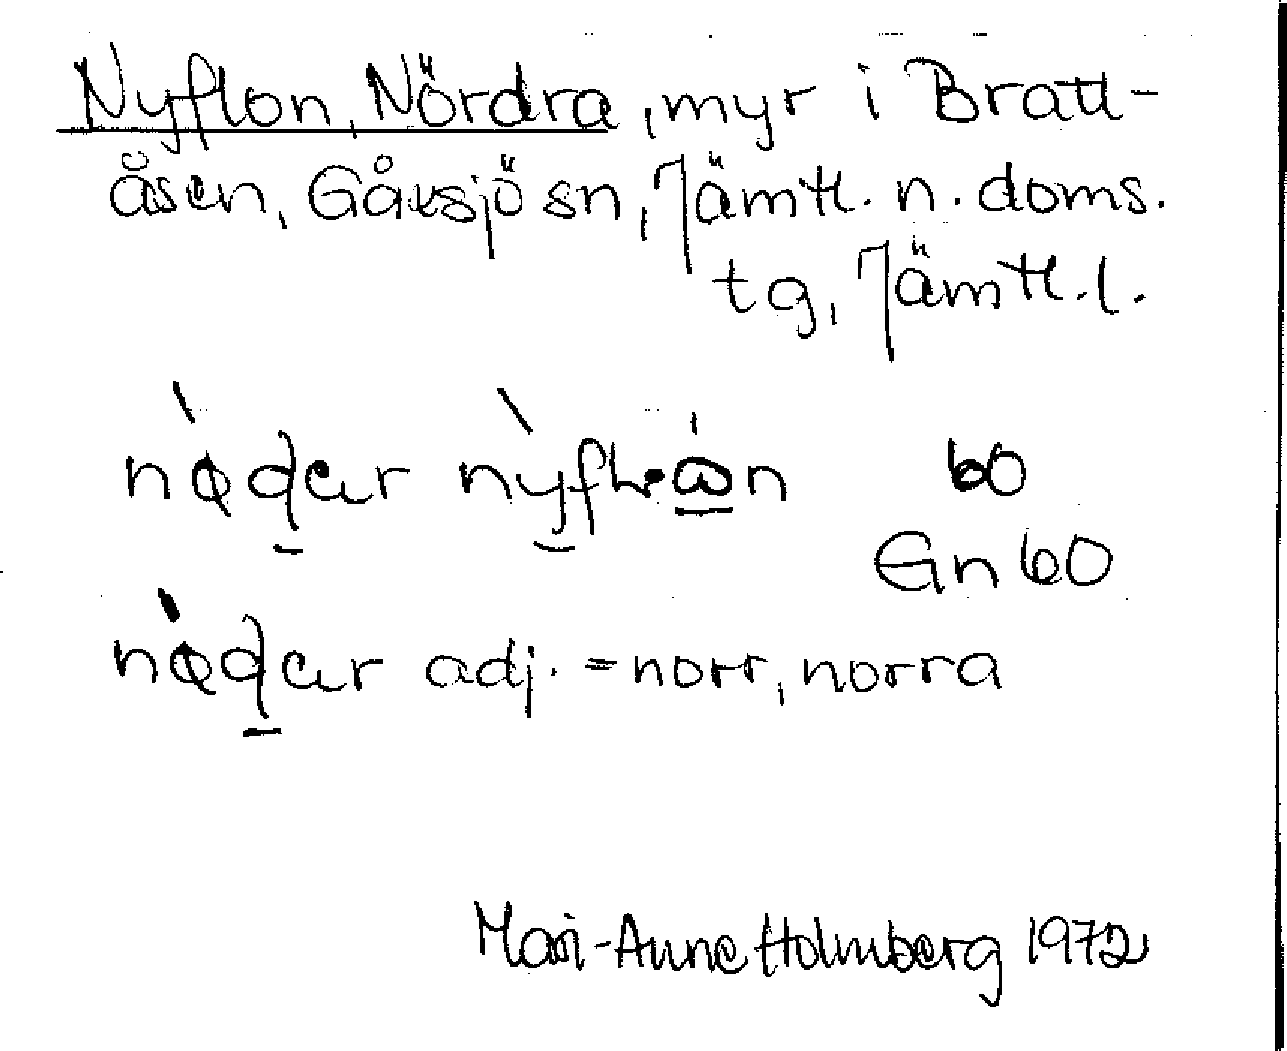 Nyflon, Nördra, myr i Bratt-
åsen, Gåxsjö sn, Jämtl. n. doms.
tg, Jämtl. l.
60
Gn 60
adj. = norr, norra
Mari-Anne Holmberg 1972